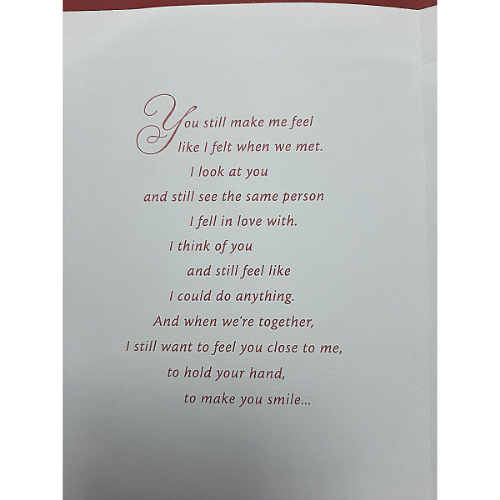 You still make me feel
like I felt when we met.
I look at you
and still see the same person
I fell in love with.
I think of you
and still feel like
I could do anything.
And when we're together,
I still want to feel you close to me,
to hold your hand,
to make you smile...